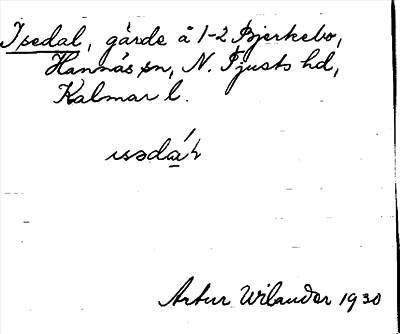 Isedal, gärde å 1-2 Bjerkebo,
Hannäs sn, N. Tjusts hd,
Kalmar l.
Artur Wilander 1930